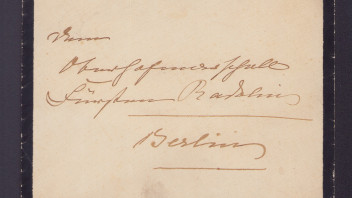 Dem
Oberhofmarschall
Fürsten Radolin
Berlin